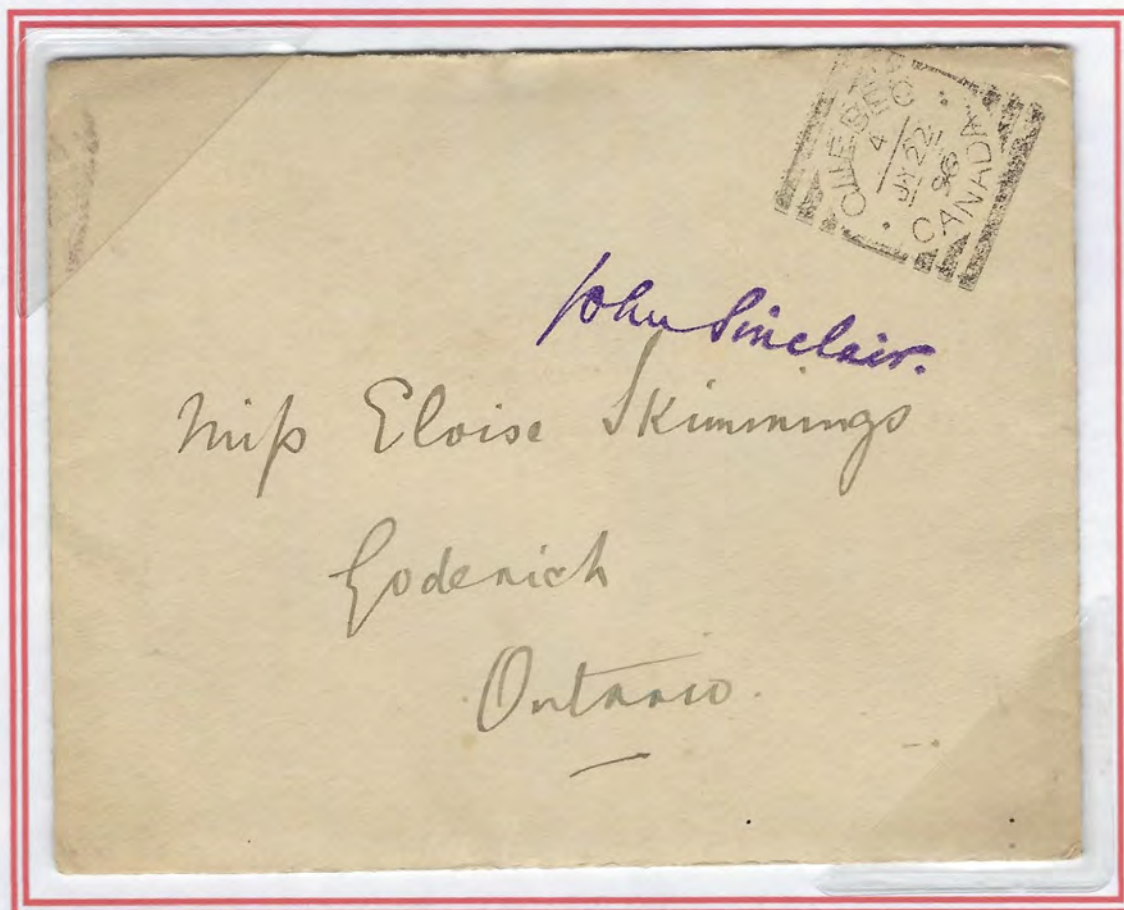 QUEBEC
4
JY 22
96
CANADA
John Sinclair.
Miss Eloise Skimmings
Goderich
Ontario.